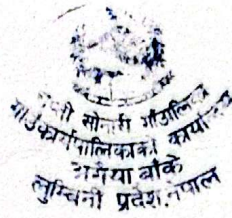 सोनारी गाउँपालिका
गाउँकार्यपालिकाको कार्या
बाँके
लुम्बिनी प्रदेश, नेपाल